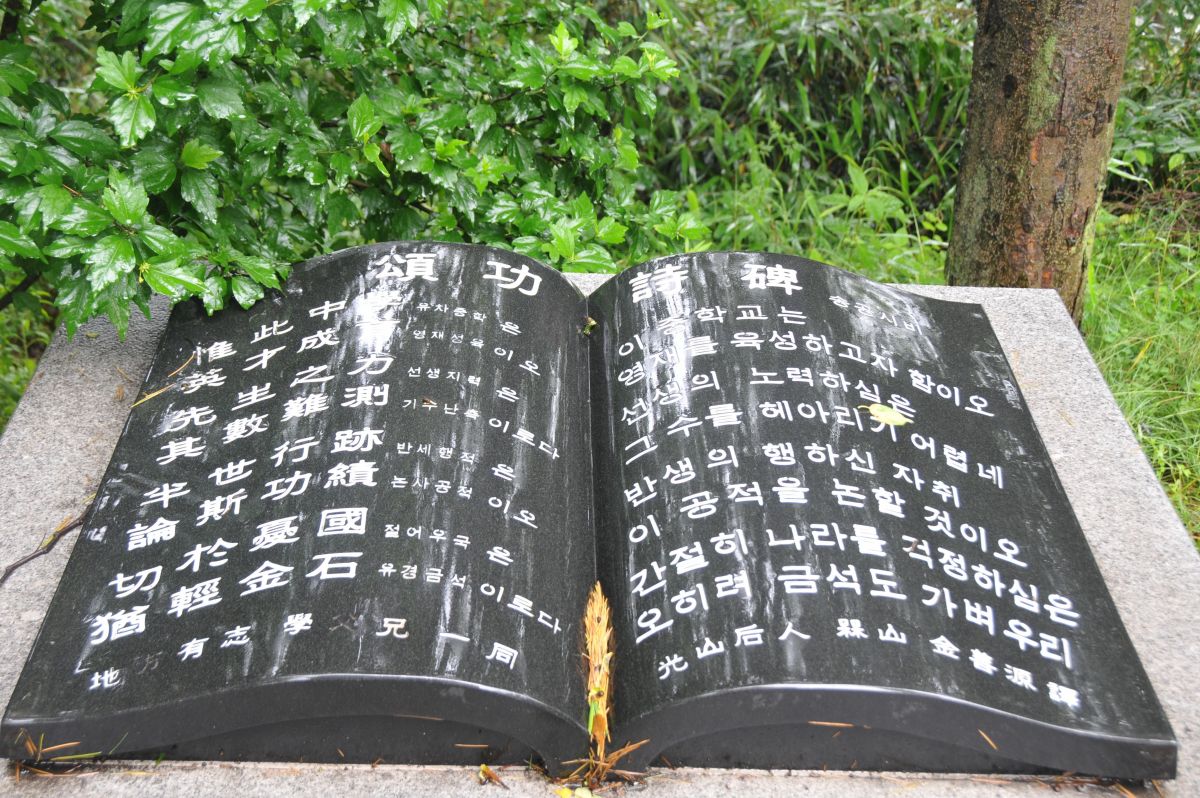 頌功
惟此中學 유차중학은
英才成育 영재성육이오
先生之力 선생지력은
其數難測 기수난측이로다
半世行跡 반세행적은
論斯功績 논사공적이오
切於憂國 절어우국은
猶輕金石 유경금석이로다
地方有志 學父兄一同
詩碑 송공시비
이 중학교는
영재를 육성하고자 함이오
선생의 노력하심은
그 수를 헤아리기 어렵네
반생의 행하신 자취
이 공적을 논할 것이오
간절히 나라를 걱정하심은
오히려 금석도 가벼우리
光山后人 山 金善源 譯